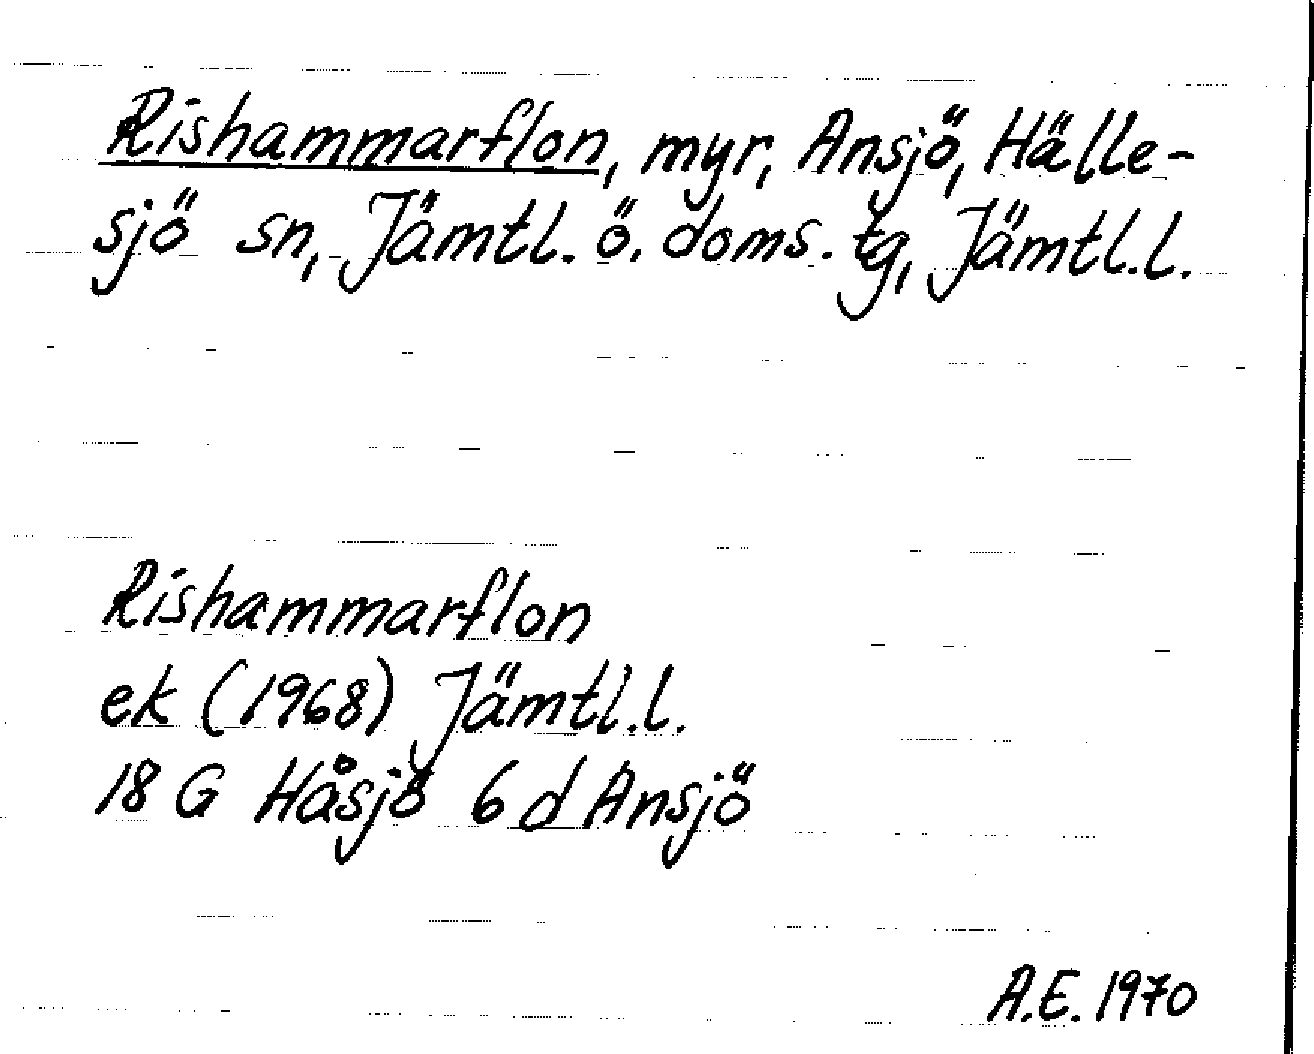 Rishammarflon, myr, Ansjö, Hälle-
sjö sn, Jämtl. ö. doms. tg, Jämtl.l.
Rishammarflon
ek (1968) Jämtl.l.
18 G Håsjö 6 d Ansjö
A.E. 1970